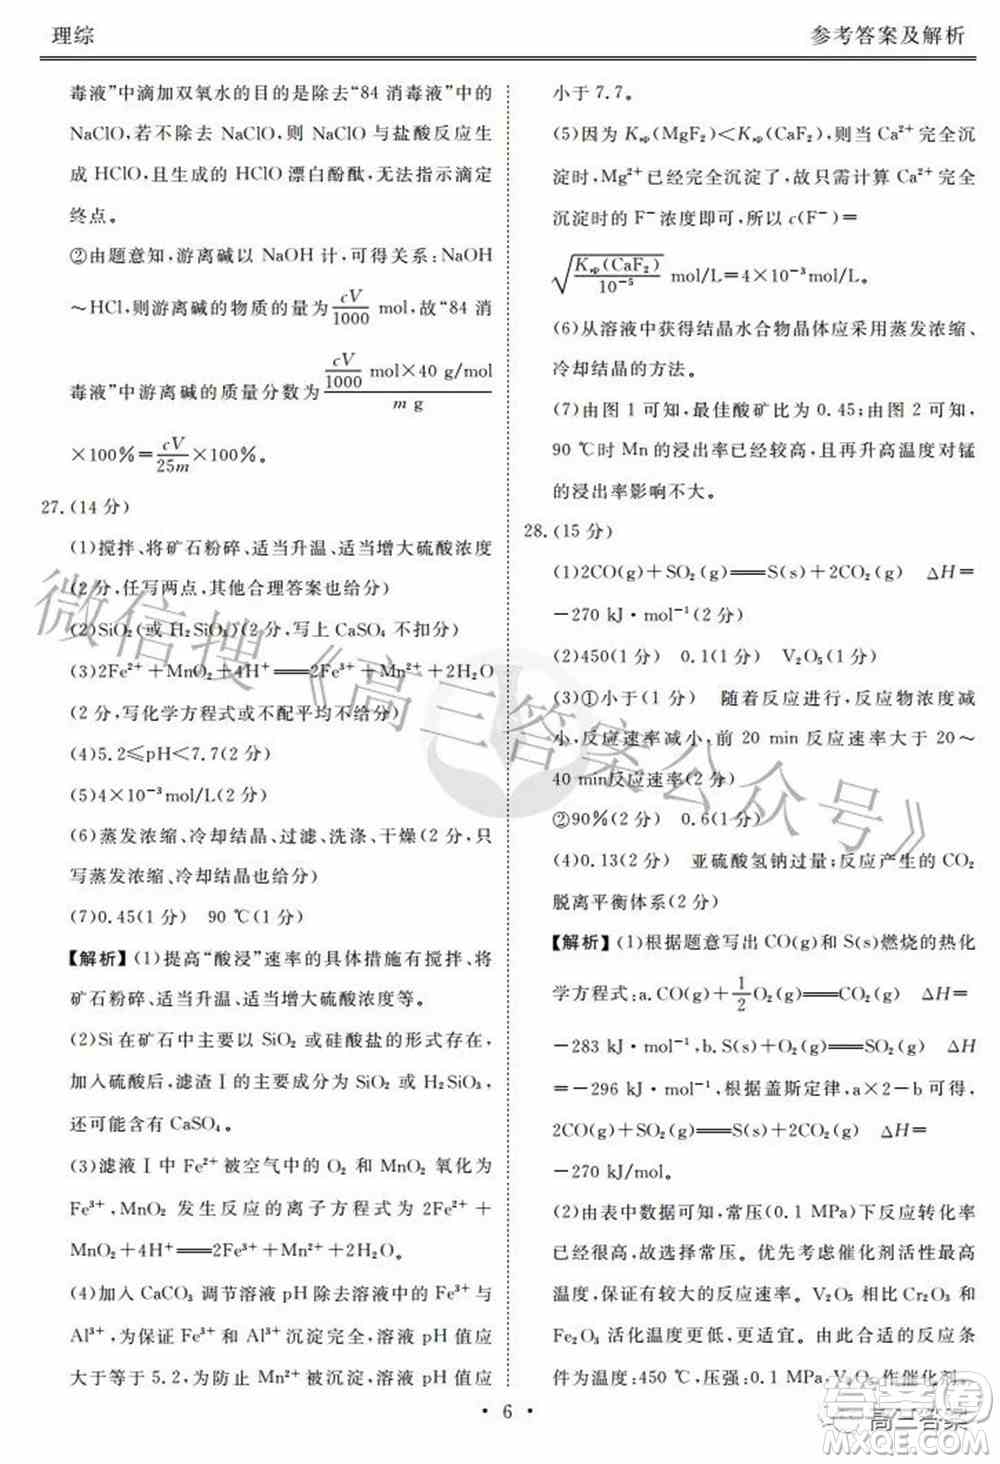 理综
参考答案及解析
毒液”中滴加双氧水的目的是除去“84 消毒液”中的
NaClO,若不除去 NaClO,则 NaClO 与盐酸反应生
成 HClO,且生成的 HClO 漂白酚酞,无法指示滴定
终点。
②由题意知,游离碱以 NaOH 计,可得关系:NaOH
～HCl,则游离碱的物质的量为 cV/1000 mol,故“84 消
毒液”中游离碱的质量分数为 (cV/1000 mol×40 g/mol)/(m g)
×100%=cV/25m×100%。
27.(14 分)
(1)搅拌、将矿石粉碎、适当升温、适当增大硫酸浓度
(2 分,任写两点,其他合理答案也给分)
(2)SiO₂(或 H₂SiO₃)(2 分,写上 CaSO₄ 不扣分)
(3)2Fe²⁺+MnO₂+4H⁺══2Fe³⁺+Mn²⁺+2H₂O
(2 分,写化学方程式或不配平均不给分)
(4)5.2≤pH<7.7(2 分)
(5)4×10⁻³mol/L(2 分)
(6)蒸发浓缩、冷却结晶、过滤、洗涤、干燥(2 分,只
写蒸发浓缩、冷却结晶给 1 分)
(7)0.45(1 分) 90 ℃(1 分)
【解析】(1)提高“酸浸”速率的具体措施有搅拌、将
矿石粉碎、适当升温、适当增大硫酸浓度等。
(2)Si 在矿石中主要以 SiO₂ 或硅酸盐的形式存在,
加入硫酸后,滤渣Ⅰ的主要成分为 SiO₂ 或 H₂SiO₃,
还可能含有 CaSO₄。
(3)滤液Ⅰ中 Fe²⁺ 被空气中的 O₂ 和 MnO₂ 氧化为
Fe³⁺,MnO₂ 发生反应的离子方程式为 2Fe²⁺+
MnO₂+4H⁺══2Fe³⁺+Mn²⁺+2H₂O。
(4)加入 CaCO₃ 调节溶液 pH 除去溶液中 Fe³⁺ 与
Al³⁺,为保证 Fe³⁺ 和 Al³⁺ 沉淀完全,溶液 pH 值应
大于等于 5.2,为防止 Mn²⁺ 被沉淀,溶液 pH 值应
小于 7.7。
(5)因为 Kₛₚ(MgF₂)<Kₛₚ(CaF₂),则当 Ca²⁺ 完全沉
淀时,Mg²⁺ 已经完全沉淀了,故只需计算 Ca²⁺ 完全
沉淀时的 F⁻ 浓度即可,所以 c(F⁻)=
√(Kₛₚ(CaF₂)/10⁻⁵) mol/L=4×10⁻³mol/L。
(6)从溶液中获得结晶水合物晶体应采用蒸发浓缩、
冷却结晶的方法。
(7)由图 1 可知,最佳酸矿比为 0.45;由图 2 可知,
90 ℃时 Mn 的浸出率已经较高,且再升高温度对锰
的浸出率影响不大。
28.(15 分)
(1)2CO(g)+SO₂(g)══S(s)+2CO₂(g) ΔH=
−270 kJ·mol⁻¹(2 分)
(2)450(1 分) 0.1(1 分) V₂O₅(1 分)
(3)①小于(1 分) 随着反应进行,反应物浓度减
小,反应速率减小,前 20 min 反应速率大于 20～
40 min反应速率(1 分)
②90%(2 分) 0.6(1 分)
(4)0.13(2 分) 亚硫酸氢钠过量;反应产生的 CO₂
脱离平衡体系(2 分)
【解析】(1)根据题意写出 CO(g)和 S(s)燃烧的热化
学方程式:a.CO(g)+1/2O₂(g)══CO₂(g) ΔH=
−283 kJ·mol⁻¹,b.S(s)+O₂(g)══SO₂(g) ΔH
=−296 kJ·mol⁻¹,根据盖斯定律,a×2−b 可得,
2CO(g)+SO₂(g)══S(s)+2CO₂(g) ΔH=
−270 kJ/mol。
(2)由表中数据可知,常压(0.1 MPa)下反应转化率
已经很高,故选择常压。优先考虑催化剂活性温度
较低的和较大的反应速率。V₂O₅ 比 Cr₂O₃ 和
Fe₂O₃ 活化温度更低,更适宜。由此合适的反应条
件为温度:450 ℃,压强:0.1 MPa,V₂O₅ 作催化剂。
• 6 •
微信搜《高三答案公众号》
高三答案
答案圈
MXQE.COM